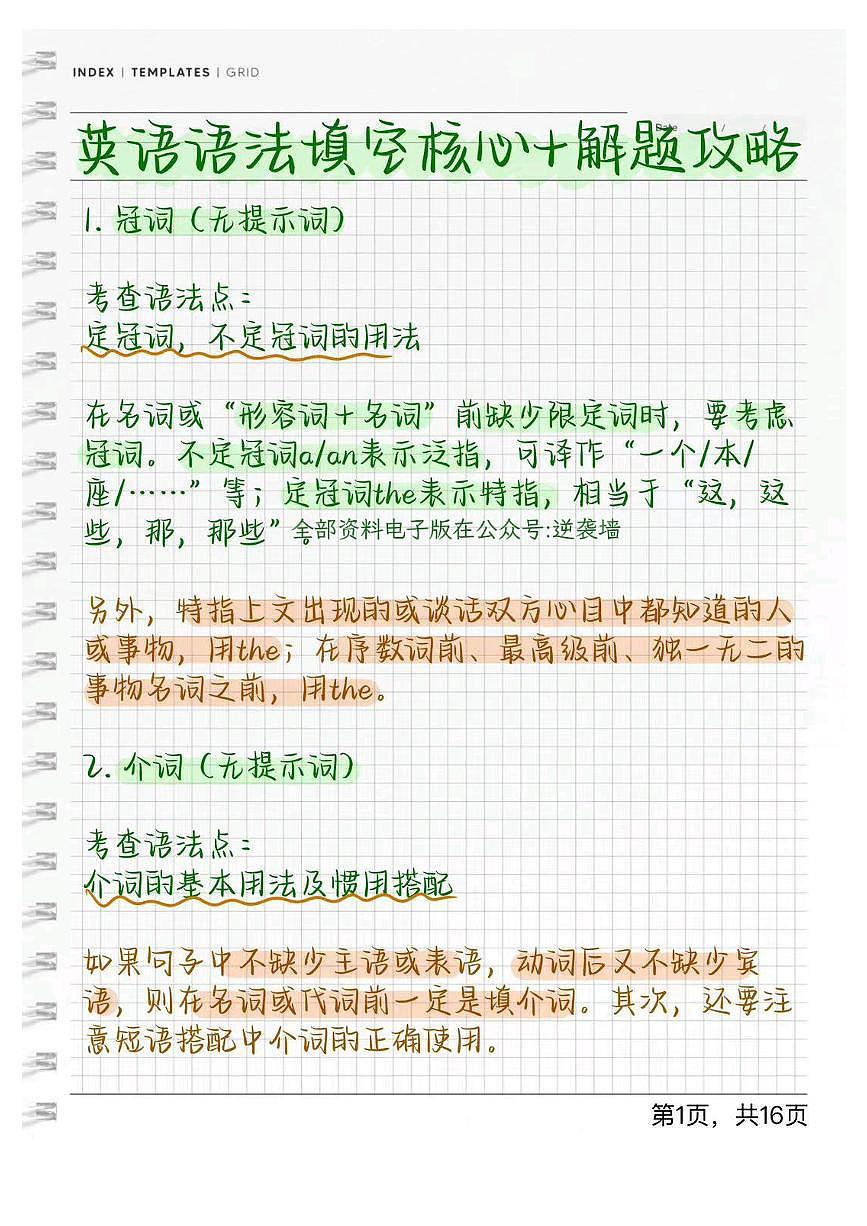 INDEX | TEMPLATES | GRID
Date / /
英语语法填空核心+解题攻略
1. 冠词（无提示词）
考查语法点：
定冠词，不定冠词的用法
在名词或“形容词+名词”前缺少限定词时，要考虑
冠词。不定冠词a/an表示泛指，可译作“一个/本/
座/……”等；定冠词the表示特指，相当于“这，这
些，那，那些”。全部资料电子版在公众号:逆袭墙
另外，特指上文出现的或谈话双方心目中都知道的人
或事物，用the；在序数词前、最高级前、独一无二的
事物名词之前，用the。
2. 介词（无提示词）
考查语法点：
介词的基本用法及惯用搭配
如果句子中不缺少主语或表语，动词后又不缺少宾
语，则在名词或代词前一定是填介词。其次，还要注
意短语搭配中介词的正确使用。
第1页，共16页